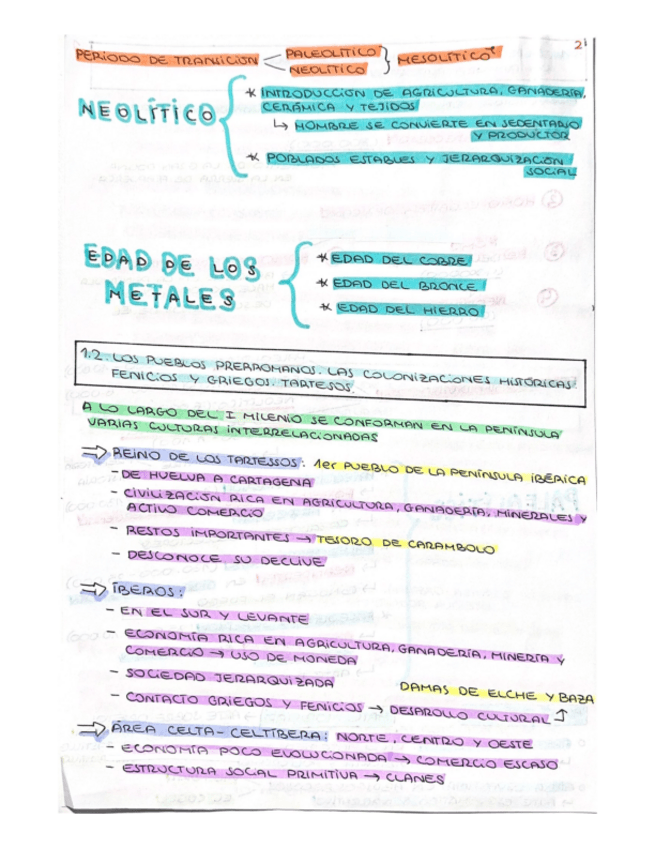 2
PERIODO DE TRANSICION < PALEOLITICO
NEOLÍTICO } MESOLÍTICO
NEOLÍTICO
* INTRODUCCION DE AGRICULTURA, GANADERÍA,
CERÁMICA Y TEJIDOS
↳ HOMBRE SE CONVIERTE EN SEDENTARIO
Y PRODUCTOR
* POBLADOS ESTABLES Y JERARQUIZACIÓN
SOCIAL
EDAD DE LOS
METALES
* EDAD DEL COBRE
* EDAD DEL BRONCE
* EDAD DEL HIERRO
1.2. LOS PUEBLOS PRERROMANOS. LAS COLONIZACIONES HISTÓRICAS:
FENICIOS Y GRIEGOS. TARTESOS.
A LO LARGO DEL I MILENIO SE CONFORMAN EN LA PENÍNSULA
VARIAS CULTURAS INTERRELACIONADAS
⇒ REINO DE LOS TARTESSOS: 1er PUEBLO DE LA PENÍNSULA IBÉRICA
- DE HUELVA A CARTAGENA
- CIVILIZACIÓN RICA EN AGRICULTURA, GANADERÍA, MINERALES Y
ACTIVO COMERCIO
- RESTOS IMPORTANTES → TESORO DE CARAMBOLO
- DESCONOCE SU DECLIVE
⇒ ÍBEROS:
- EN EL SUR Y LEVANTE
- ECONOMÍA RICA EN AGRICULTURA, GANADERÍA, MINERÍA Y
COMERCIO → USO DE MONEDA
- SOCIEDAD JERARQUIZADA
DAMAS DE ELCHE Y BAZA
- CONTACTO GRIEGOS Y FENICIOS → DESAROLLO CULTURAL ↑
⇒ ÁREA CELTA-CELTÍBERA: NORTE, CENTRO Y OESTE
- ECONOMÍA POCO EVOLUCIONADA → COMERCIO ESCASO
- ESTRUCTURA SOCIAL PRIMITIVA → CLANES